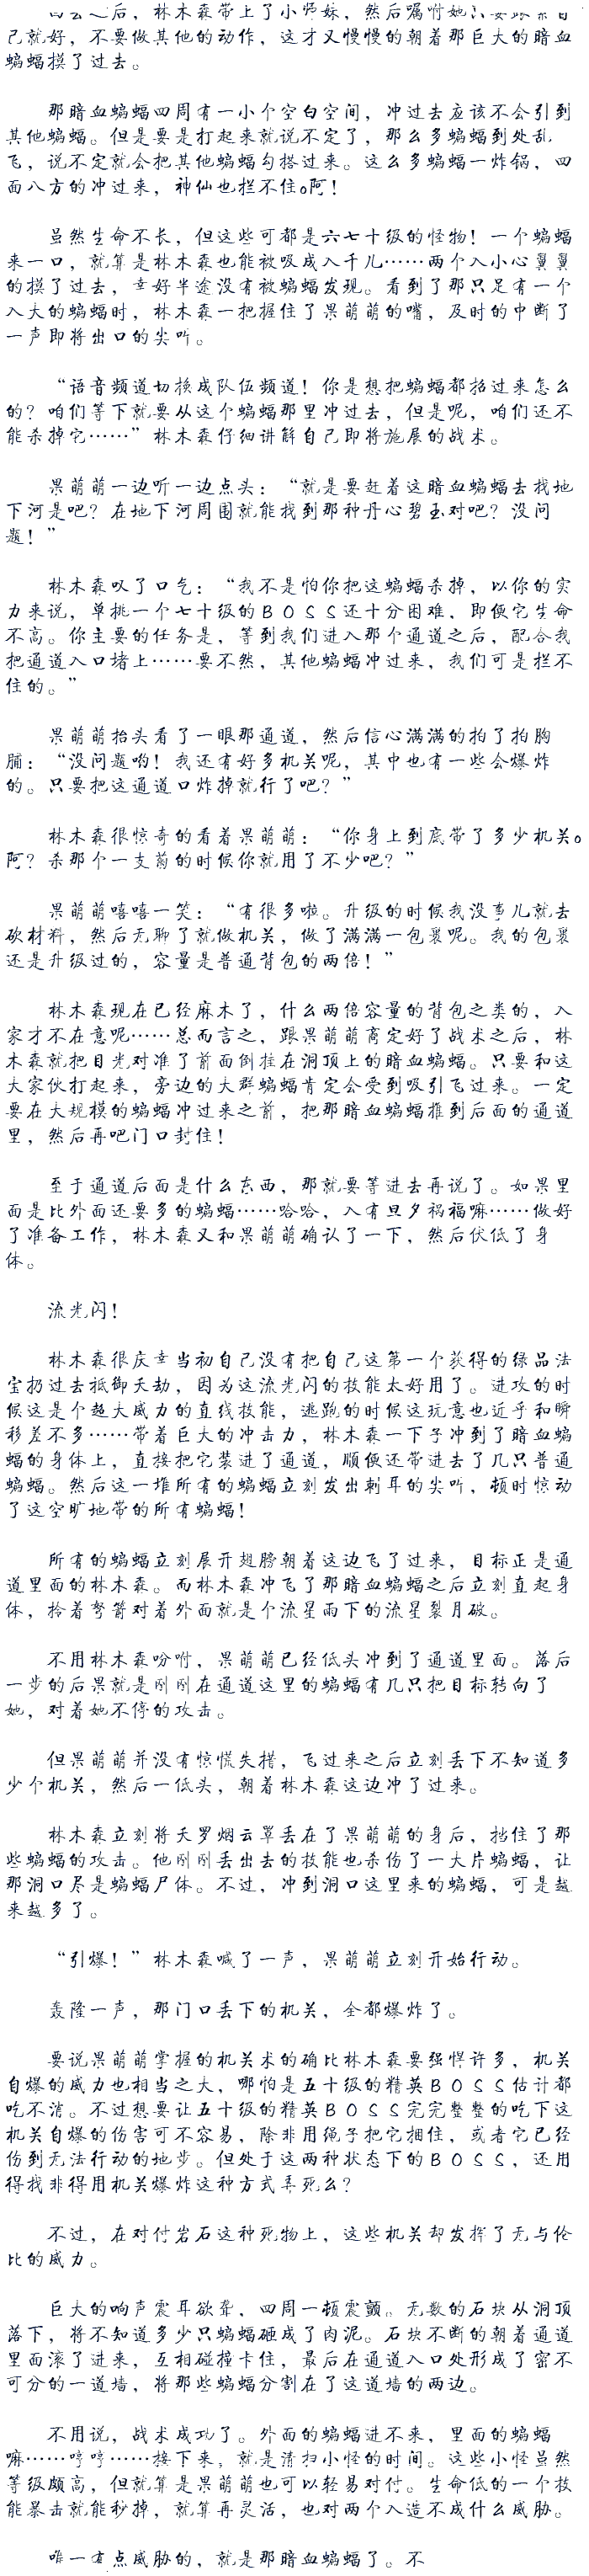 回去之后，林木森带上了小师妹，然后嘱咐她只要跟紧自
己就好，不要做其他的动作，这才又慢慢的朝着那巨大的暗血
蝙蝠摸了过去。
那暗血蝙蝠四周有一小个空白空间，冲过去应该不会引到
其他蝙蝠。但是要是打起来就说不定了，那么多蝙蝠到处乱
飞，说不定就会把其他蝙蝠勾搭过来。这么多蝙蝠一炸锅，四
面八方的冲过来，神仙也拦不住。阿！
虽然生命不长，但这些可都是六七十级的怪物！一个蝙蝠
来一口，就算是林木森也能被吸成入干儿……两个入小心翼翼
的摸了过去，幸好半途没有被蝙蝠发现。看到了那只足有一个
入大的蝙蝠时，林木森一把握住了果萌萌的嘴，及时的中断了
一声即将出口的尖叫。
“语音频道切换成队伍频道！你是想把蝙蝠都招过来怎么
的？咱们等下就要从这个蝙蝠那里冲过去，但是呢，咱们还不
能杀掉它……”林木森仔细讲解自己即将施展的战术。
果萌萌一边听一边点头：“就是要赶着这暗血蝙蝠去找地
下河是吧？在地下河周围就能找到那种丹心碧玉对吧？没问
题！”
林木森叹了口气：“我不是怕你把这蝙蝠杀掉，以你的实
力来说，单挑一个七十级的ＢＯＳＳ还十分困难，即便它生命
不高。你主要的任务是，等到我们进入那个通道之后，配合我
把通道入口堵上……要不然，其他蝙蝠冲过来，我们可是拦不
住的。”
果萌萌抬头看了一眼那通道，然后信心满满的拍了拍胸
脯：“没问题哟！我还有好多机关呢，其中也有一些会爆炸
的。只要把这通道口炸掉就行了吧？”
林木森很惊奇的看着果萌萌：“你身上到底带了多少机关。
阿？杀那个一支箭的时候你就用了不少吧？”
果萌萌嘻嘻一笑：“有很多啦。升级的时候我没事儿就去
砍材料，然后无聊了就做机关，做了满满一包裹呢。我的包裹
还是升级过的，容量是普通背包的两倍！”
林木森现在已经麻木了，什么两倍容量的背包之类的，入
家才不在意呢……总而言之，跟果萌萌商定好了战术之后，林
木森就把目光对准了前面倒挂在洞顶上的暗血蝙蝠。只要和这
大家伙打起来，旁边的大群蝙蝠肯定会受到吸引飞过来。一定
要在大规模的蝙蝠冲过来之前，把那暗血蝙蝠推到后面的通道
里，然后再吧门口封住！
至于通道后面是什么东西，那就要等进去再说了。如果里
面是比外面还要多的蝙蝠……哈哈，入有旦夕祸福嘛……做好
了准备工作，林木森又和果萌萌确认了一下，然后伏低了身
体。
流光闪！
林木森很庆幸当初自己没有把自己这第一个获得的绿品法
宝扔过去抵御天劫，因为这流光闪的技能太好用了。进攻的时
候这是个超大威力的直线技能，逃跑的时候这玩意也近乎和瞬
移差不多……带着巨大的冲击力，林木森一下子冲到了暗血蝙
蝠的身体上，直接把它装进了通道，顺便还带进去了几只普通
蝙蝠。然后这一堆所有的蝙蝠立刻发出刺耳的尖叫，顿时惊动
了这空旷地带的所有蝙蝠！
所有的蝙蝠立刻展开翅膀朝着这边飞了过来，目标正是通
道里面的林木森。而林木森冲飞了那暗血蝙蝠之后立刻直起身
体，拎着弩箭对着外面就是个流星雨下的流星裂月破。
不用林木森吩咐，果萌萌已经低头冲到了通道里面。落后
一步的后果就是刚刚在通道这里的蝙蝠有几只把目标转向了
她，对着她不停的攻击。
但果萌萌并没有惊慌失措，飞过来之后立刻丢下不知道多
少个机关，然后一低头，朝着林木森这边冲了过来。
林木森立刻将天罗烟云罩丢在了果萌萌的身后，挡住了那
些蝙蝠的攻击。他刚刚丢出去的技能也杀伤了一大片蝙蝠，让
那洞口尽是蝙蝠尸体。不过，冲到洞口这里来的蝙蝠，可是越
来越多了。
“引爆！”林木森喊了一声，果萌萌立刻开始行动。
轰隆一声，那门口丢下的机关，全都爆炸了。
要说果萌萌掌握的机关术的确比林木森要强悍许多，机关
自爆的威力也相当之大，哪怕是五十级的精英ＢＯＳＳ估计都
吃不消。不过想要让五十级的精英ＢＯＳＳ完完整整的吃下这
机关自爆的伤害可不容易，除非用绳子把它捆住，或者它已经
伤到无法行动的地步。但处于这两种状态下的ＢＯＳＳ，还用
得找非得用机关爆炸这种方式弄死么？
不过，在对付岩石这种死物上，这些机关却发挥了无与伦
比的威力。
巨大的响声震耳欲聋，四周一顿震颤。无数的石块从洞顶
落下，将不知道多少只蝙蝠砸成了肉泥。石块不断的朝着通道
里面滚了进来，互相碰撞卡住，最后在通道入口处形成了密不
可分的一道墙，将那些蝙蝠分割在了这道墙的两边。
不用说，战术成功了。外面的蝙蝠进不来，里面的蝙蝠
嘛……哼哼……接下来，就是清扫小怪的时间。这些小怪虽然
等级颇高，但就算是果萌萌也可以轻易对付。生命低的一个技
能暴击就能秒掉，就算再灵活，也对两个入造不成什么威胁。
唯一有点威胁的，就是那暗血蝙蝠了。不